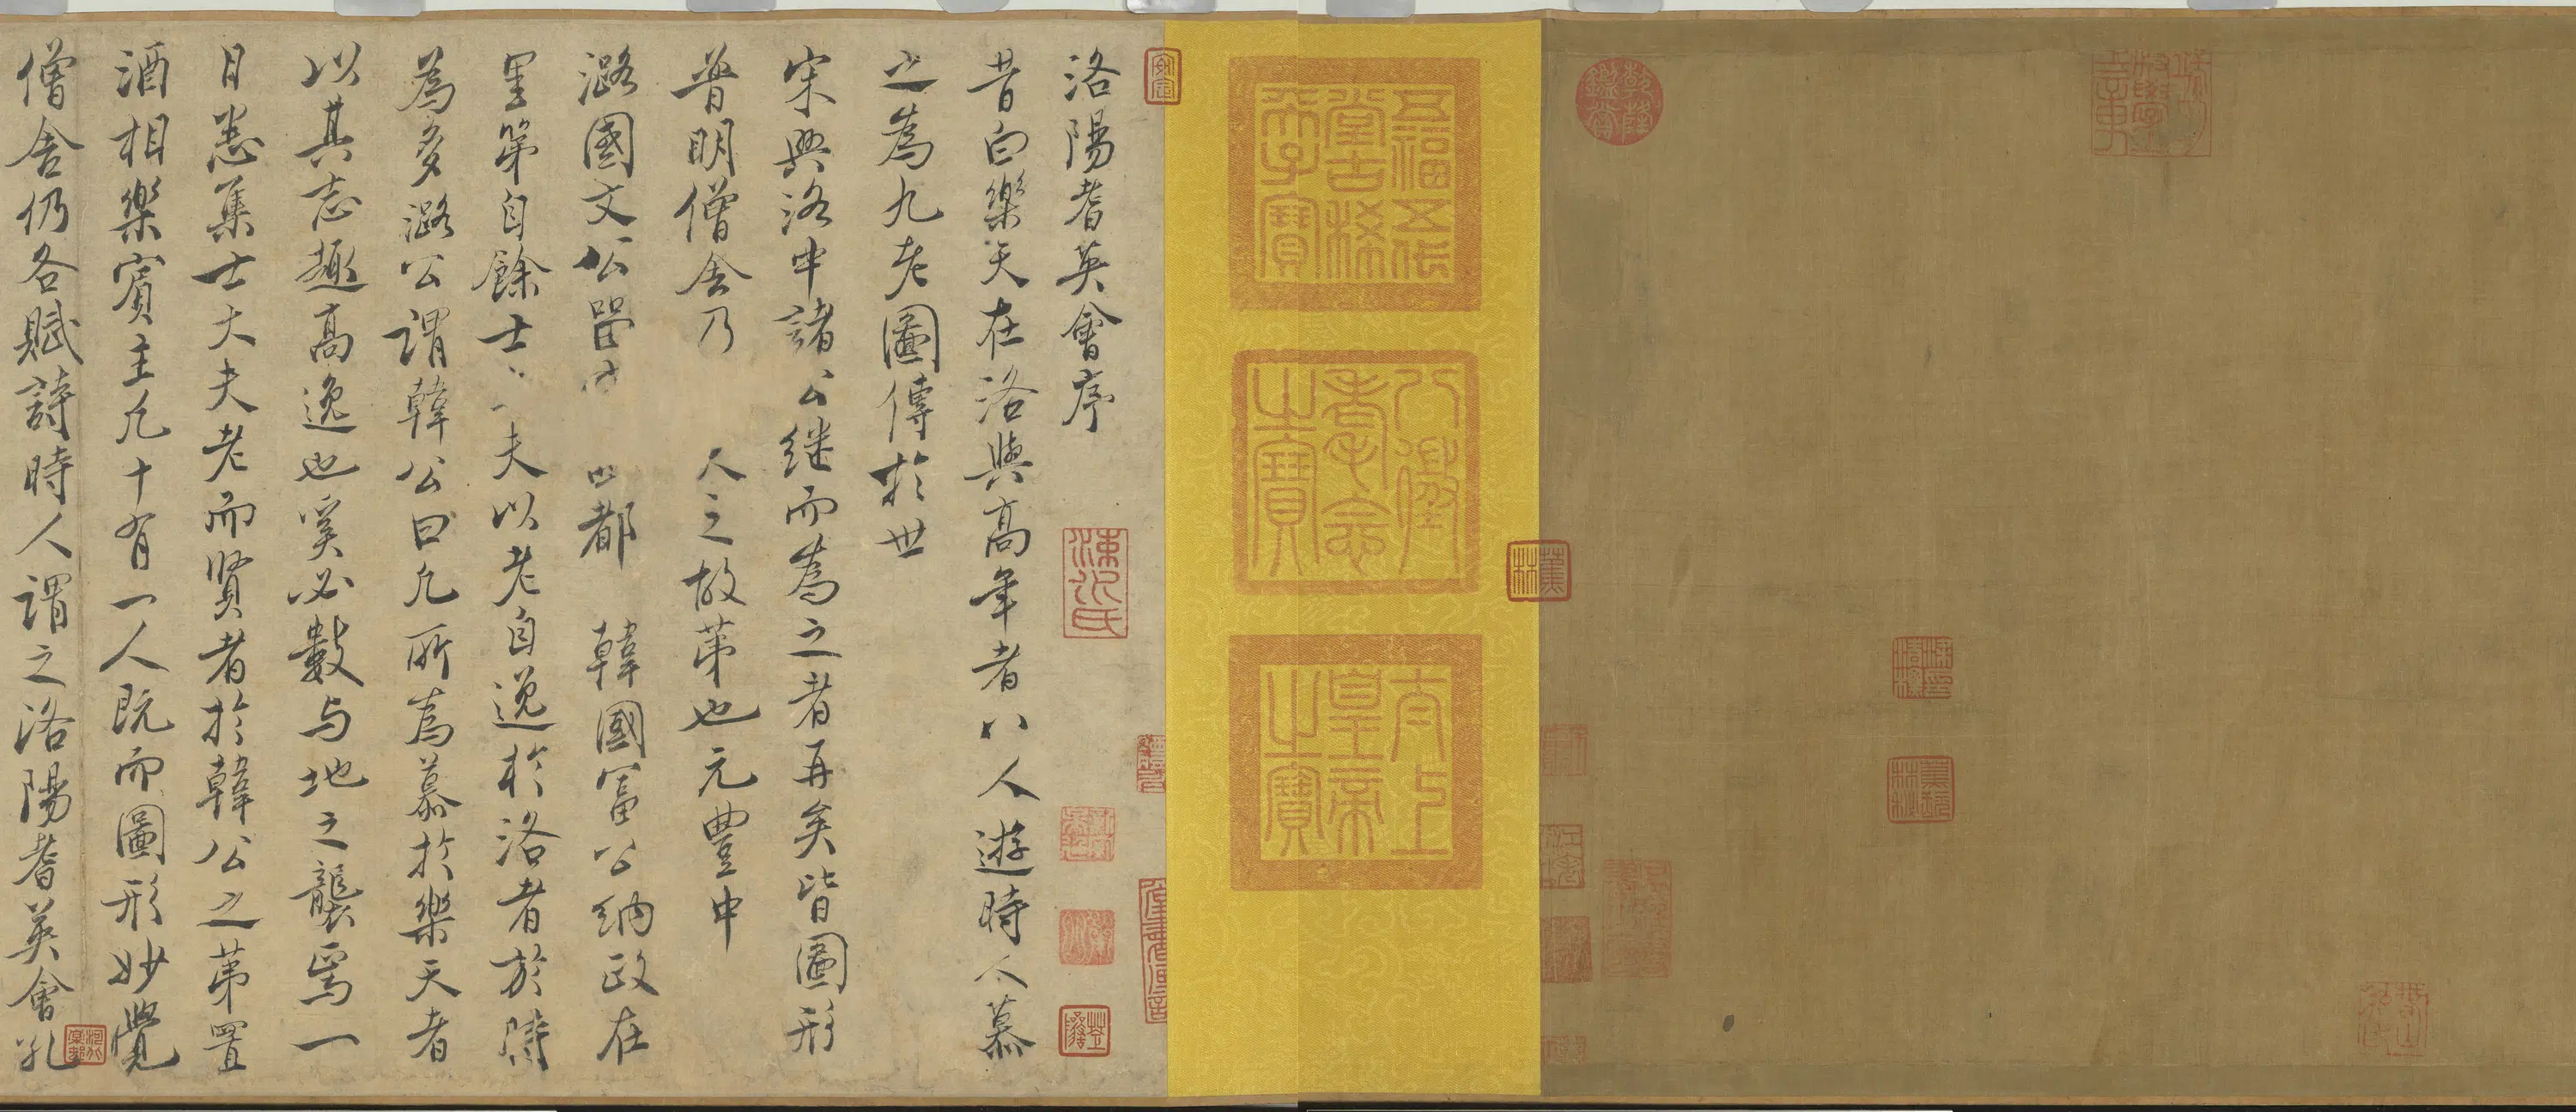 乾隆鑑賞
蕉林
五福五代堂古稀天子寶
八徵耄念之寶
太上皇帝之寶
安定
洛陽耆英會序
涑水氏
昔白樂天在洛與高年者八人遊時人慕
之為九老圖傳於世
宋興洛中諸公继而為之者再矣皆圖形
普明僧舍乃
人之故苐也元豐中
潞國文公留
都
韓國富公納政在
里第自餘士
夫以老自逸於洛者於時
為多潞公謂韓公曰凡所為慕於樂天者
以其志趣高逸也奚必數与地之襲焉一
日悉集士大夫老而賢者於韓公之苐置
酒相樂賓主凡十有一人既而圖形妙覺
僧舍仍各賦詩時人謂之洛陽耆英會孔